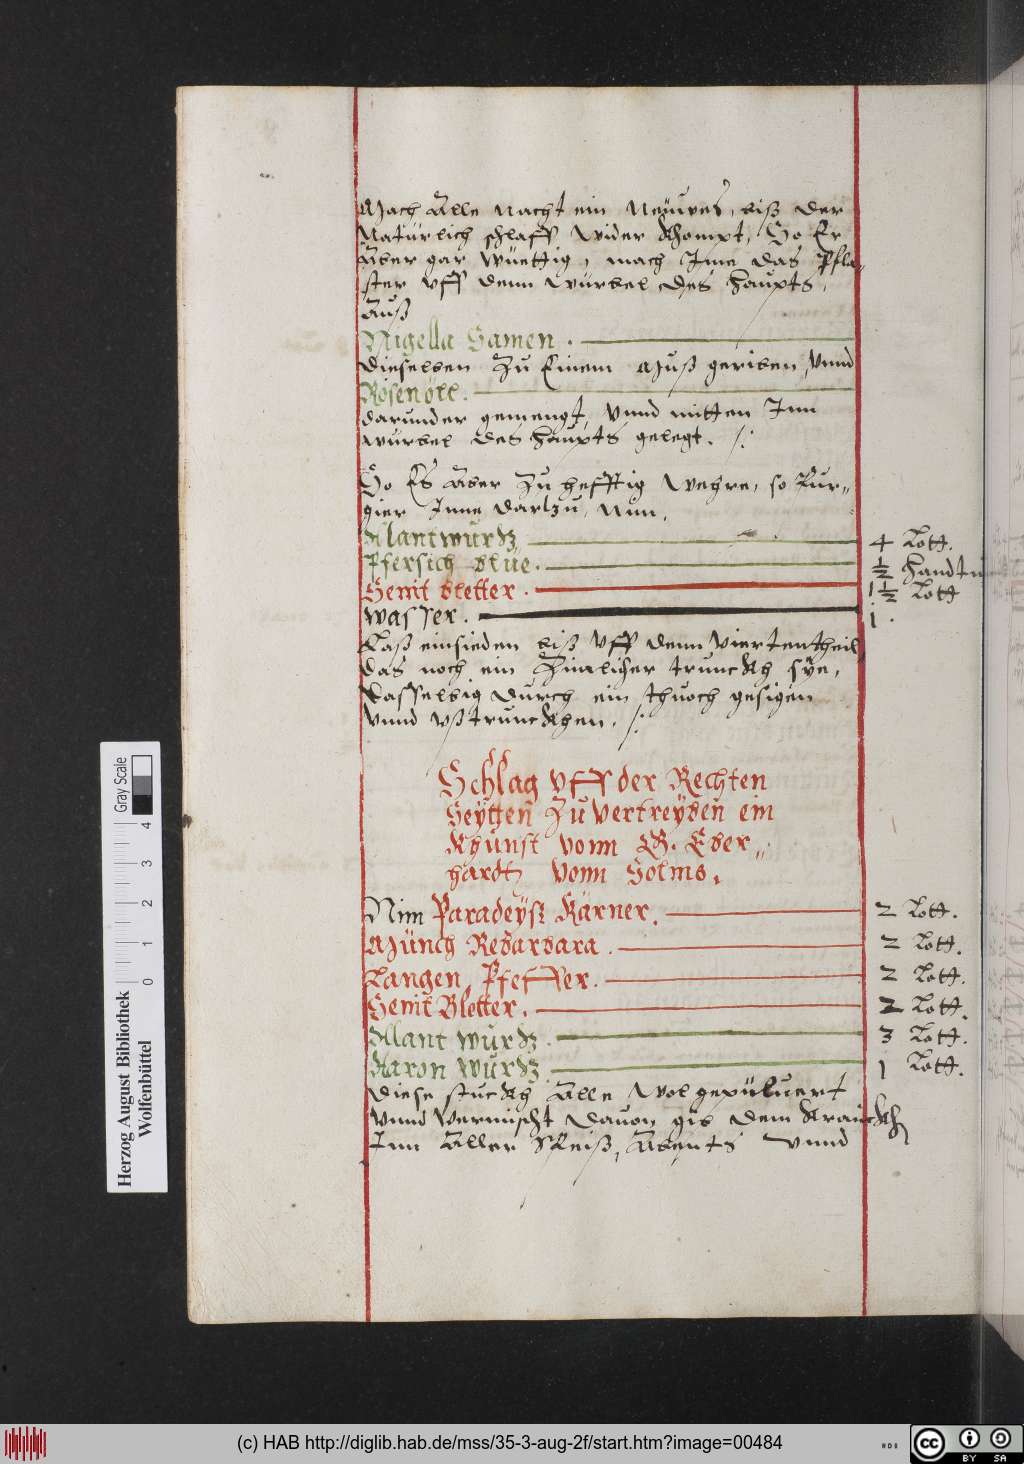 Mach Alle nacht ein Neüwes, biß der
Natürlich schlaff wider Khompt, So Er
Aber gar wüettig, mach Ime das Pfla„
ster vff dem würbel des haupts,
Auß
Nigella Samen .
dieselben Zu Einem Muß geriben, vnnd
Rosenöll.
darunder gemengt, vnnd mitten Inn
würbel des haupts gelegt. ./.
So Es Aber Zu hefftig Wehre, so Pur„
gier Inne darzu, Nim,
Alantwurtz 4 Lott.
Pfersich blüe . ½ handtu
Senit bletter . 1½ Lott
Wasser . 1 .
Laß einsieden biß vff denn viertentheil,
das noch ein Zimlicher trunckh sÿe,
dasselbig durch ein thuoch gesigen
vnnd vßtrunckhen. ./.
Schlag vff der Rechten
Seytten Zu vertreyben ein
Khunst vonn G. Eber„
hardt vonn Solms.
Nim Paradeyß Kärner. 2 Lott.
Münch Rebarbara . 2 Lott.
Langen Pfeffer. 2 Lott.
Senit Bletter. 2 Lott.
Alant wurtz . 3 Lott.
Aaron wurtz 1 Lott.
diese stuckh Alle wol gepüluert
vnnd vermischt dauon gib dem Kranckh
Inn Aller Speiß, Abents vnnd
Herzog August Bibliothek
Wolfenbüttel
0 1 2 3 4
Gray Scale
(c) HAB http://diglib.hab.de/mss/35-3-aug-2f/start.htm?image=00484
cc BY SA